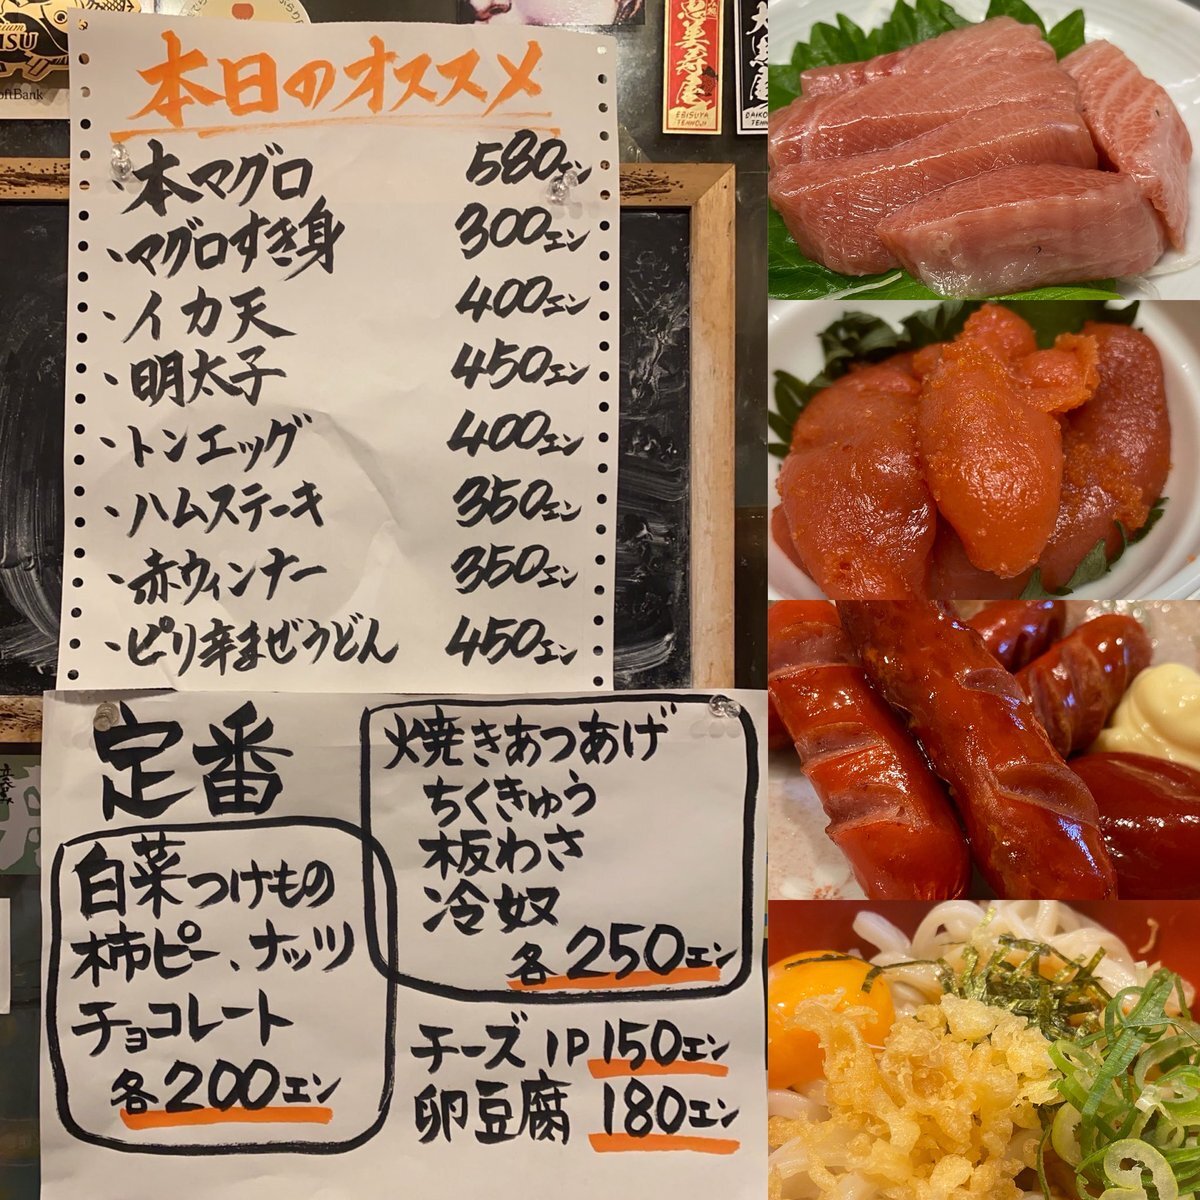 SoftBank
恵美寿屋
EBISUYA
TENNOJI
本日のオススメ
・本マグロ 580エン
・マグロすき身 300エン
・イカ天 400エン
・明太子 450エン
・トンエッグ 400エン
・ハムステーキ 350エン
・赤ウィンナー 350エン
・ピリ辛まぜうどん 450エン
定番
焼きあつあげ
ちくきゅう
板わさ
冷奴
各250エン
白菜つけもの
柿ピー、ナッツ
チョコレート
各200エン
チーズ1P 150エン
卵豆腐 180エン